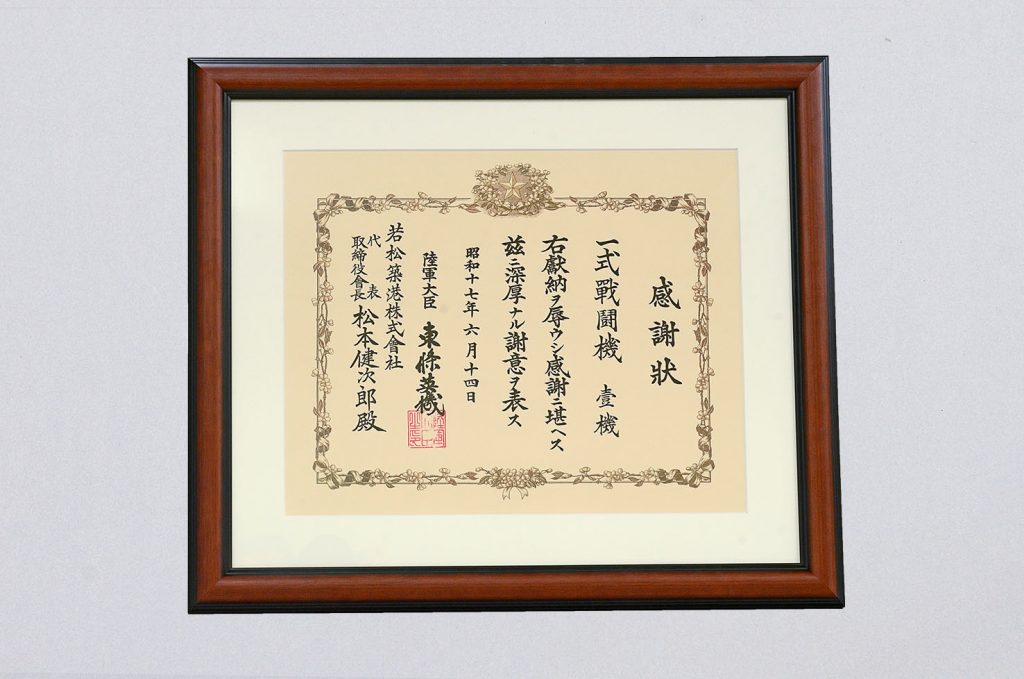 感謝狀
一式戰闘機 壹機
右獻納ヲ辱ウシ感謝ニ堪ヘス
茲ニ深厚ナル謝意ヲ表ス
昭和十七年六月十四日
陸軍大臣 東條英機
若松築港株式會社
代表
取締役會長 松本健次郎殿